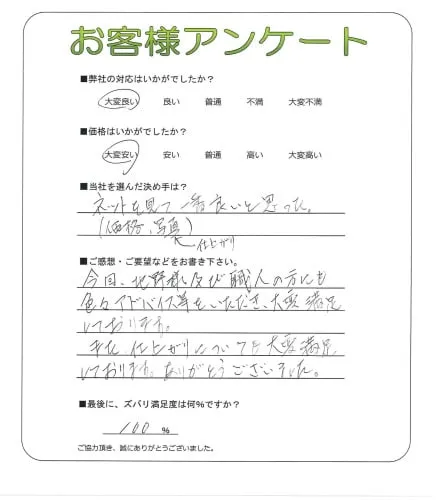 お客様アンケート
■弊社の対応はいかがでしたか?
大変良い 良い 普通 不満 大変不満
■価格はいかがでしたか?
大変安い 安い 普通 高い 大変高い
■当社を選んだ決め手は?
ネットを見て一番良いと思った。
(価格、写真)
仕上がり
■ご感想・ご要望などをお書き下さい。
今回、北野様及び職人の方にも
色々アドバイス等をいただき、大変満足
しております。
また仕上がりについても大変満足
しております。ありがとうございました。
■最後に、ズバリ満足度は何%ですか?
100 %
ご協力頂き、誠にありがとうございました。